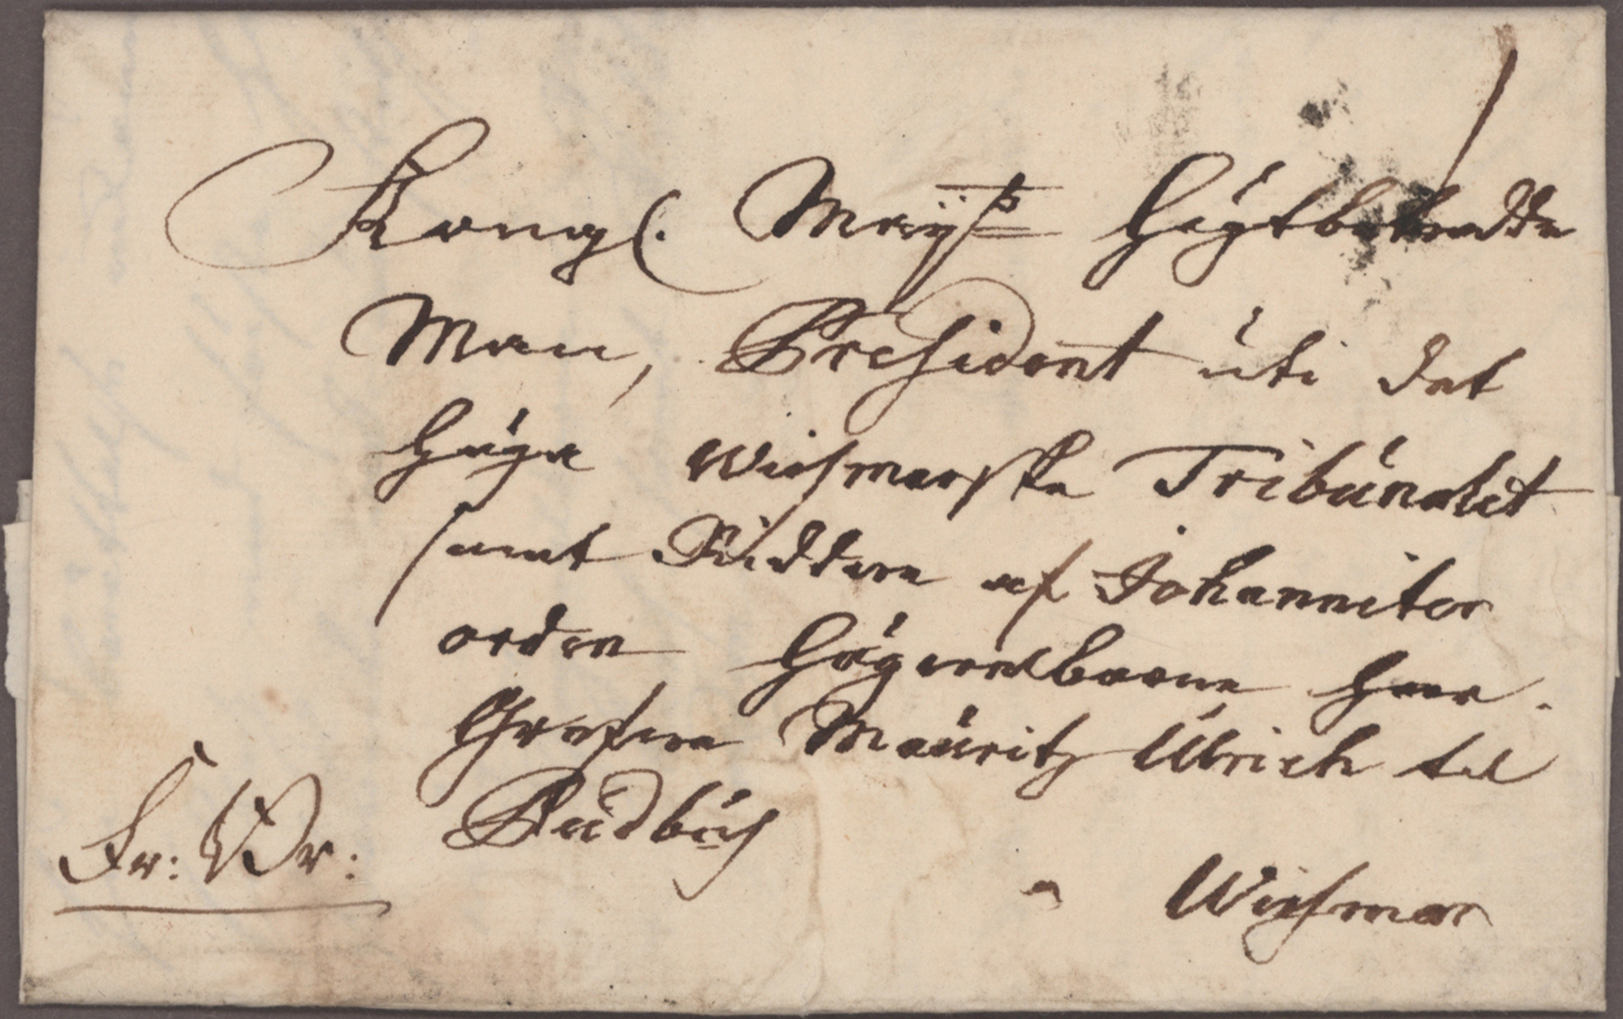 Kongl. Maÿtz Högtbetrodde
Man, President uti det
Höga Wissmarska Tribunalet
samt Riddare af Johanniter
orden Högwälborne Herr
Grefwe Mauritz Ulrich til
Pudbus
Fr: Wr:
a Wissmar